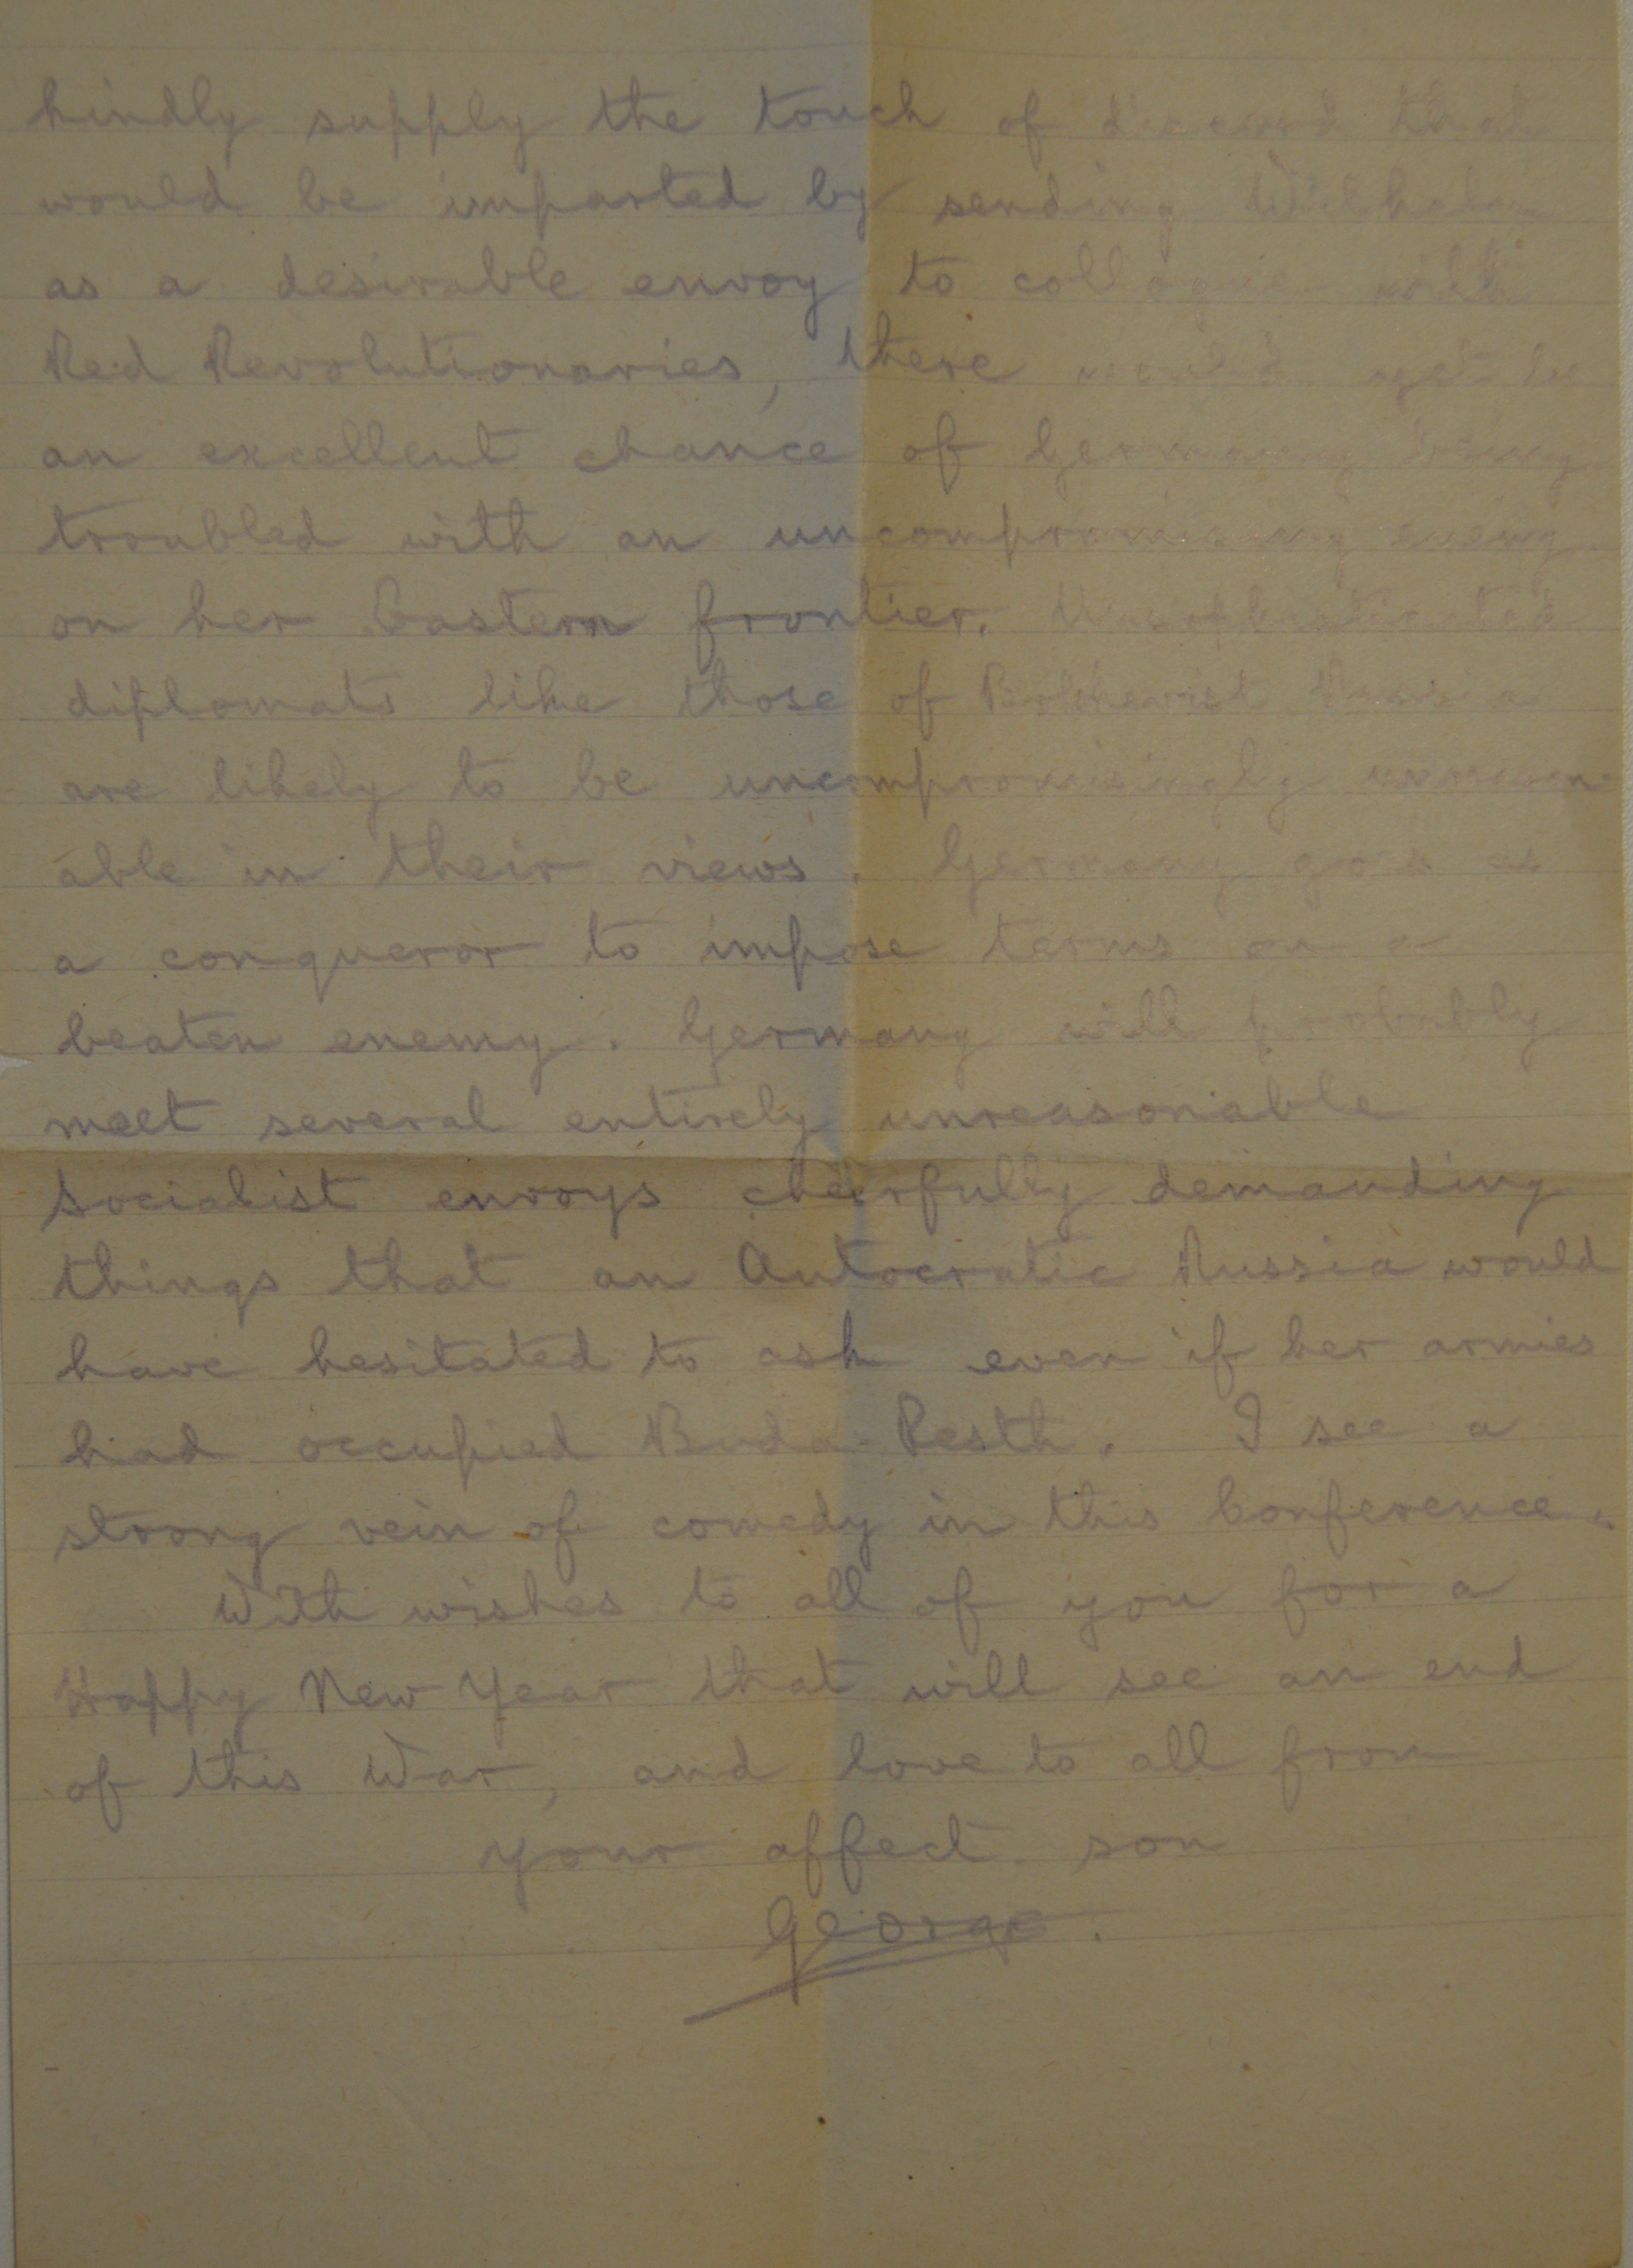 kindly supply the touch of discord that
would be imparted by sending Wilhelm
as a desirable envoy to collogue with
Red Revolutionaries, there would yet be
an excellent chance of Germany being
troubled with an uncompromising enemy
on her Eastern frontier. Unsophisticated
diplomats like those of Bolshevist Russia
are likely to be uncompromisingly unreason
able in their views. Germany goes as
a conqueror to impose terms on a
beaten enemy. Germany will probably
meet several entirely unreasonable
Socialist envoys cheerfully demanding
things that an Autocratic Russia would
have hesitated to ask even if her armies
had occupied Buda-Pesth. I see a
strong vein of comedy in this Conference.
With wishes to all of you for a
Happy New Year that will see an end
of this War, and love to all from
your affect. son
George.